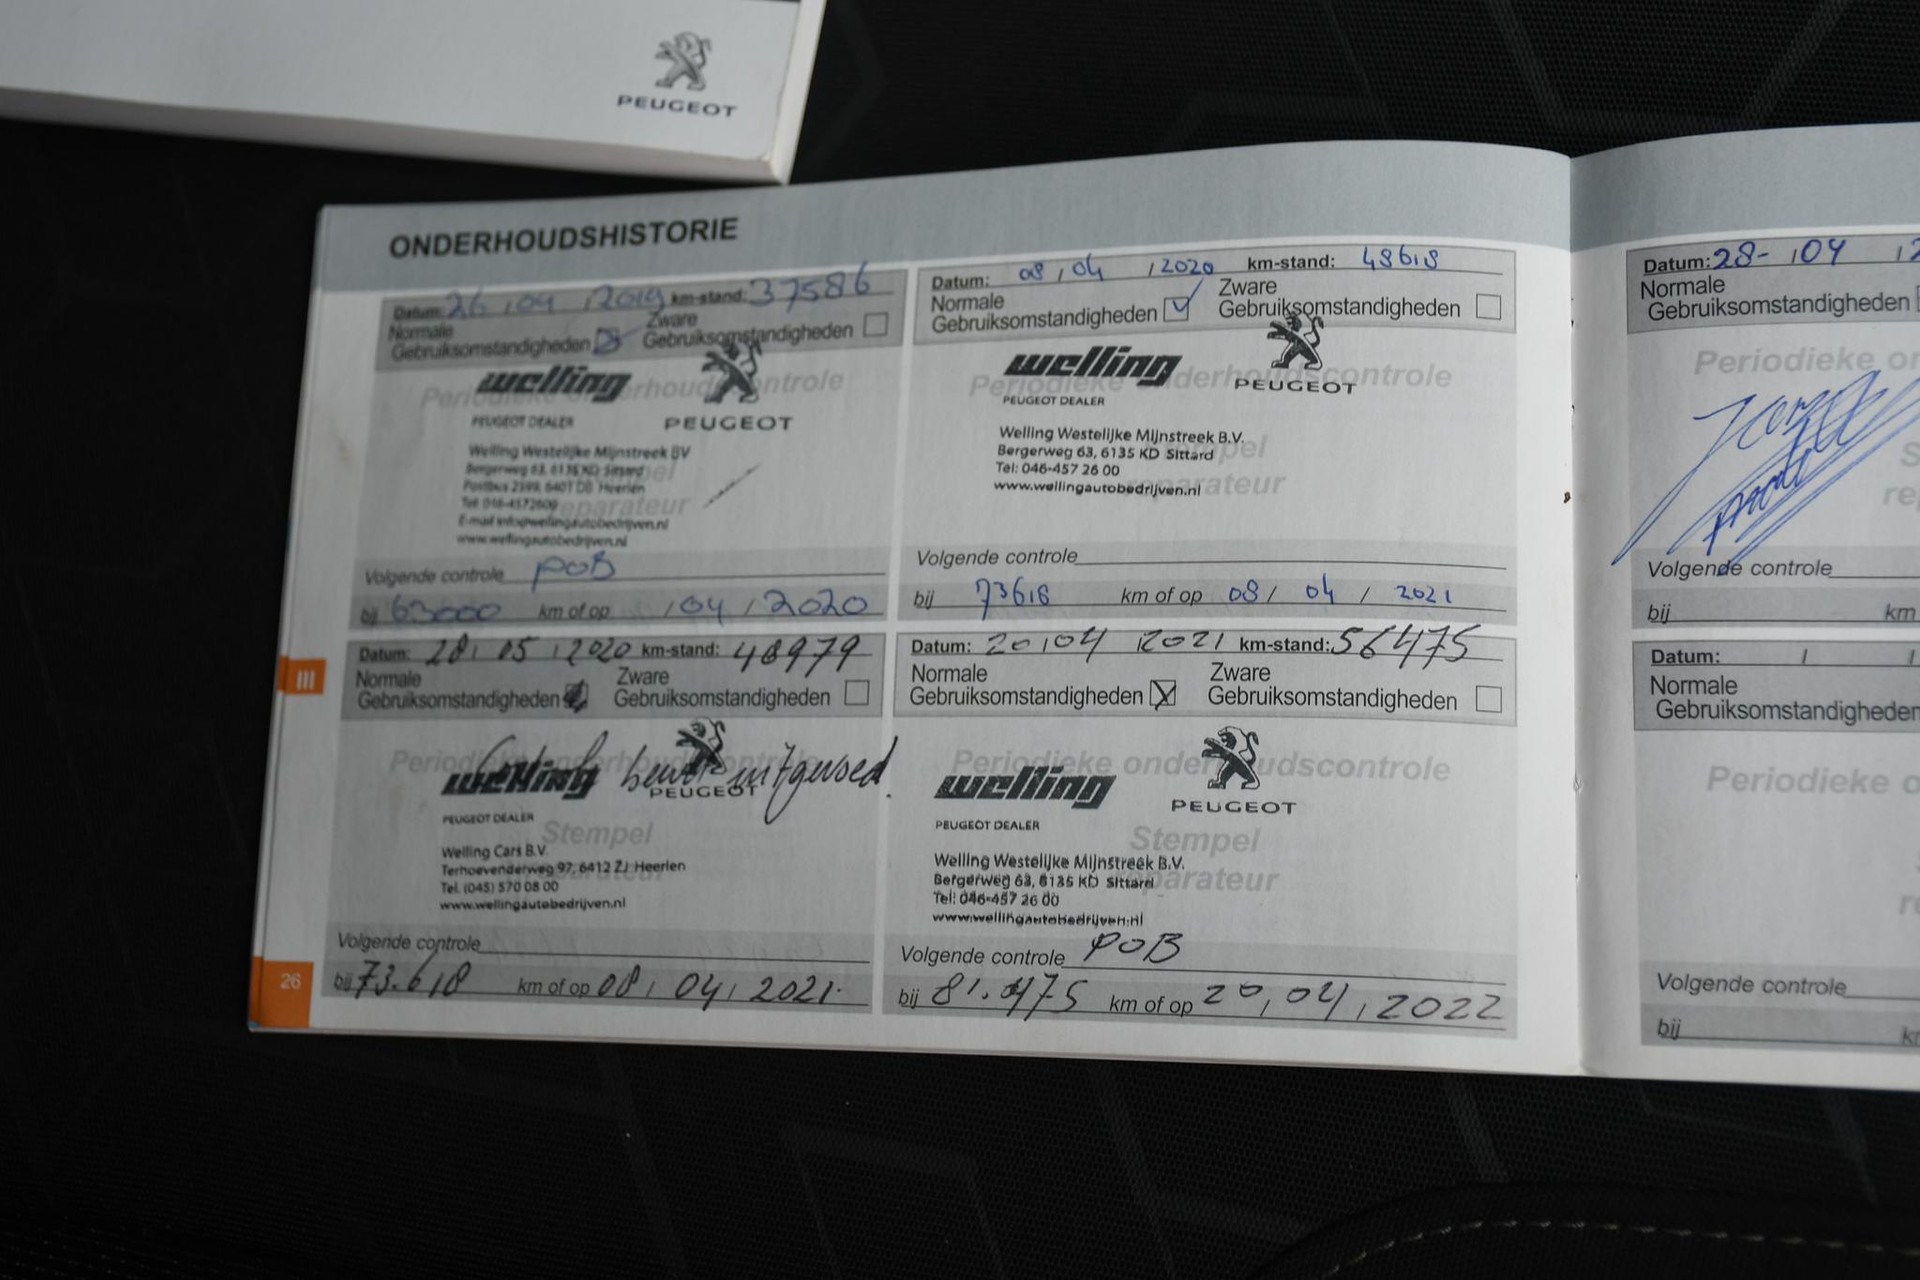 PEUGEOT
ONDERHOUDSHISTORIE
Datum: 26 / 04 / 2019 km-stand: 37586
Normale Gebruiksomstandigheden
Zware Gebruiksomstandigheden
Periodieke onderhoudscontrole
welling
PEUGEOT DEALER
PEUGEOT
Welling Westelijke Mijnstreek BV
Bergerweg 63, 6135 KD Sittard
Postbus 2599, 6401 DB Heerlen
Tel: 046-4572600
E-mail info@wellingautobedrijven.nl
www.wellingautobedrijven.nl
Volgende controle POB
bij 63000 km of op / 04 / 2020
Datum: 08 / 04 / 2020 km-stand: 48618
Normale Gebruiksomstandigheden
Zware Gebruiksomstandigheden
Periodieke onderhoudscontrole
welling
PEUGEOT DEALER
PEUGEOT
Welling Westelijke Mijnstreek B.V.
Bergerweg 63, 6135 KD Sittard
Tel: 046-457 26 00
www.wellingautobedrijven.nl
Volgende controle
bij 73618 km of op 08 / 04 / 2021
Datum: 28 / 05 / 2020 km-stand: 48979
Normale Gebruiksomstandigheden
Zware Gebruiksomstandigheden
Periodieke onderhoudscontrole
welling
PEUGEOT
PEUGEOT DEALER
Stempel reparateur
Welling Cars B.V.
Terhoevenderweg 97, 6412 ZJ Heerlen
Tel. (045) 570 08 00
www.wellingautobedrijven.nl
Volgende controle
bij 73.618 km of op 08 / 04 / 2021
Datum: 20 / 04 / 2021 km-stand: 56475
Normale Gebruiksomstandigheden
Zware Gebruiksomstandigheden
Periodieke onderhoudscontrole
welling
PEUGEOT DEALER
PEUGEOT
Stempel reparateur
Welling Westelijke Mijnstreek B.V.
Bergerweg 63, 6135 KD Sittard
Tel: 046-457 26 00
www.wellingautobedrijven.nl
Volgende controle POB
bij 81.475 km of op 20 / 04 / 2022
III
26
Datum: 28- / 04 / 2
Normale
Gebruiksomstandigheden
Periodieke on
S
re
Volgende controle
bij km
Datum: / /
Normale
Gebruiksomstandigheden
Periodieke o
Volgende controle
bij